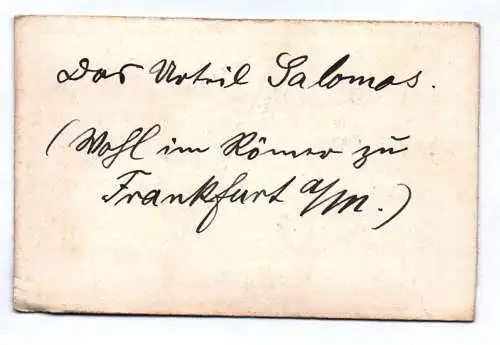 Das Urteil Salomos.
(Wohl im Römer zu
Frankfurt a/M.)